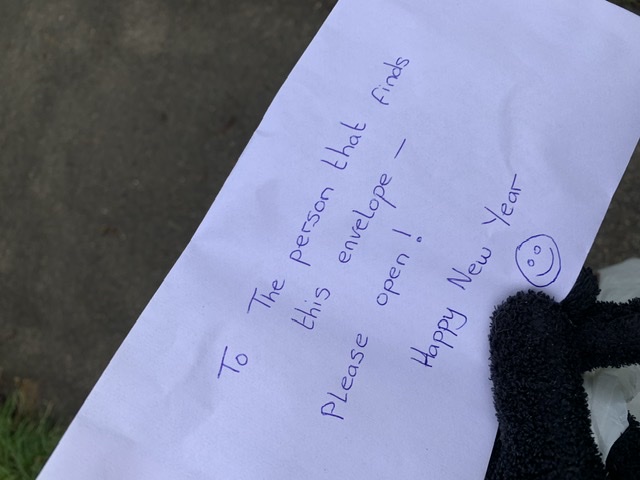 To
The person that finds
this envelope –
Please open!
Happy New Year